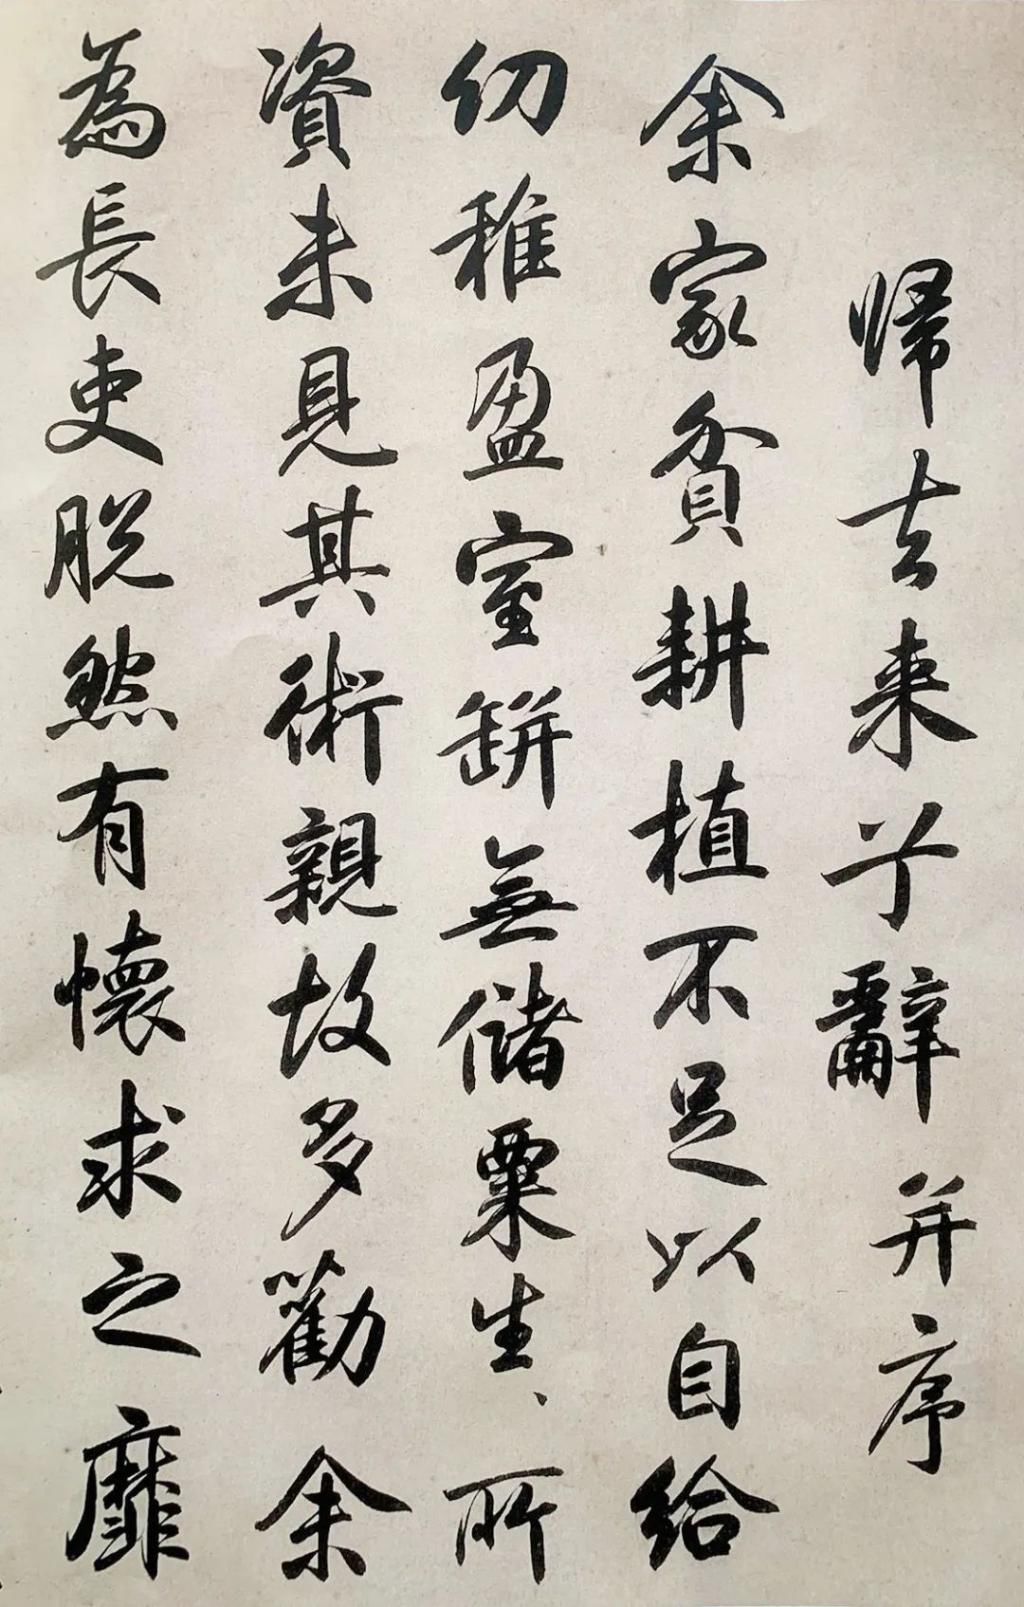 歸去来兮辭并序
余家貧耕植不足以自給
幼稚盈室缾無儲粟生〻所
資未見其術親故多勸余
為長吏脫然有懷求之靡